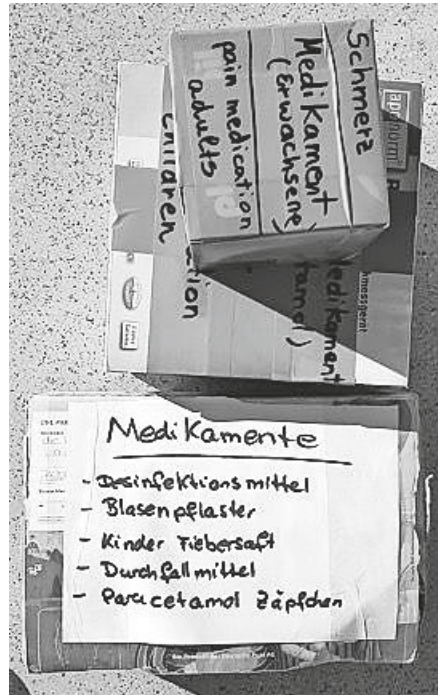 Schmerz
Medikament
(Erwachsene)
pain medication
adults
aponorm
Medikament
children
Medikamente
- Desinfektionsmittel
- Blasenpflaster
- Kinder Fiebersaft
- Durchfallmittel
- Paracetamol Zäpfchen